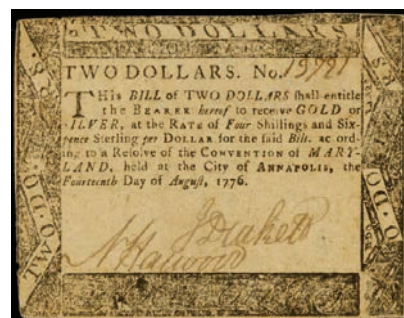 TWO DOLLARS
TWO DOLLARS. No. 15791
THis BILL of TWO DOLLARS shall entitle
the BEARER hereof to receive GOLD or
SILVER, at the RATE of Four Shillings and Six-
pence Sterling per DOLLAR for the said Bill, acord
ing to a Resolve of the CONVENTION of MARY-
LAND, held at the City of ANNAPOLIS, the
Fourteenth Day of August, 1776.
N Harwood